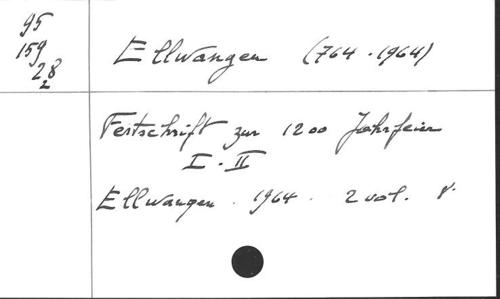 95
159
28
2
Ellwangen (764-1964)
Festschrift zur 1200 Jahrfeier
I-II
Ellwangen. 1964. 2 vol. 8.